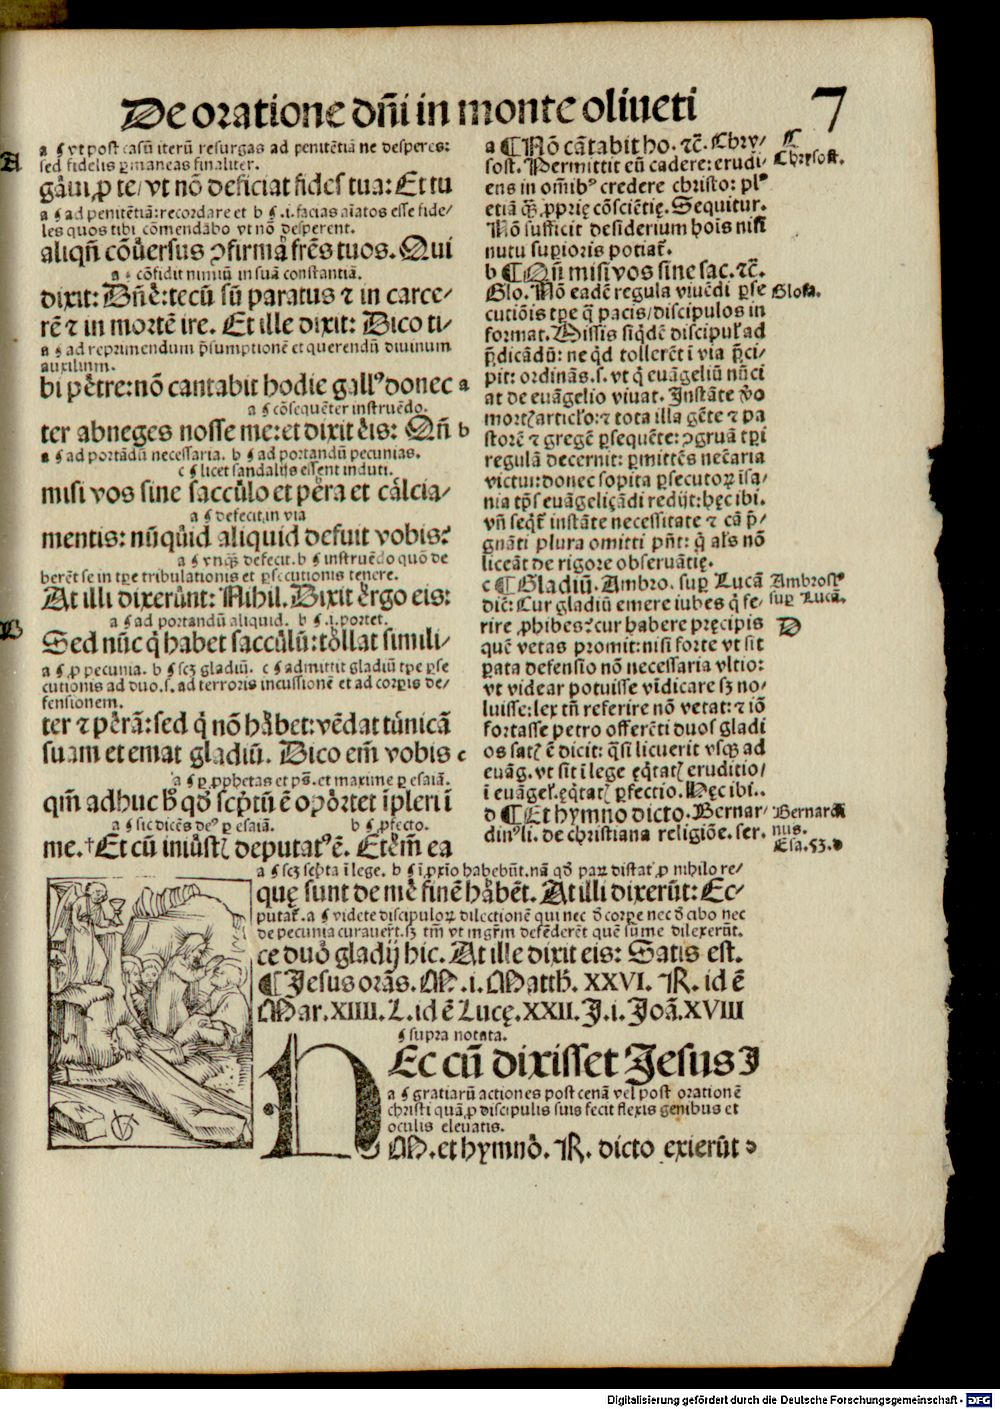 De oratione dñi in monte oliueti
7
A
a ⁋ vt post casũ iterũ resurgas ad penitẽtiã ne desperes:
sed fidelis ꝑmaneas finaliter.
gaui ꝓ te/ vt nõ deficiat fides tua: Et tu
a ⁋ ad penitẽtiã: recordare et b ⁋ .i. facias aĩatos esse fide/
les quos tibi cõmendabo vt nõ desperent.
aliqñ cõuersus ꝯfirma frẽs tuos. Qui
a ⁋ cõfidit nimiũ in suã constantiã.
dixit: Dñe: tecũ sũ paratus ⁊ in carce/
rẽ ⁊ in mortẽ ire. Et ille dixit: Dico ti/
a ⁋ ad reprimendum p̃sumptionẽ et querendũ diuinum
auxilium.
bi petre: nõ cantabit hodie gallꝰ donec a
a ⁋ cõsequẽter instruẽdo.
ter abneges nosse me: et dixit eis: Qñ b
a ⁋ ad portãdũ necessaria. b ⁋ ad portandũ pecunias.
c ⁋ licet sandalijs essent induti.
misi vos sine sacculo et pera et calcia/
a ⁋ defecit in via
mentis: nũquid aliquid defuit vobis?
a ⁋ vnq̃ defecit. b ⁋ instruẽdo quõ de
berẽt se in tꝑe tribulationis et ꝑsecutionis tenere.
At illi dixerunt: Nihil. Dixit ergo eis:
a ⁋ ad portandũ aliquid. b ⁋ .i. portet.
B
Sed nũc q̃ habet sacculũ: tollat simili/
a ⁋ ꝓ pecunia. b ⁋ scꝫ gladiũ. c ⁋ admittit gladiũ tꝑe ꝑse
cutionis ad duo .s. ad terroris incussionẽ et ad corꝑis de/
fensionem.
ter ⁊ perã: sed q̃ nõ habet: vẽdat tunicã
suam et emat gladiũ. Dico em̃ vobis c
a ⁋ ꝑ ꝓphetas et ps̃. et maxime ꝑ esaiã.
qm̃ adhuc h̃ qđ scp̃tũ ẽ oportet ĩpleri ĩ
a ⁋ sic dicẽs deꝰ ꝑ esaiã. b ⁋ ꝓfecto.
me. †Et cũ iniustꝭ deputatꝰ ẽ. Etem̃ ea
a ⁋ scꝫ scp̃ta ĩ lege. b ⁋ ĩ ꝓxĩo habebũt. nã qđ paꝝ distat ꝓ nihilo re/
que sunt de me finẽ habẽt. At illi dixerũt: Ec-
putat̃. a ⁋ videte discipuloꝝ dilectionẽ qui nec đ corꝑe nec đ cibo nec
de pecunia curauert̃. sꝫ tm̃ vt mgr̃m defẽderẽt quẽ sũme dilexerũt.
ce duo gladij hic. At ille dixit eis: Satis est.
¶ Jesus orãs. M. i. Matth. XXVI. R. id ẽ
Mar. XIIII. L. id ẽ Lucę. XXII. J. i. Joã. XVIII
⁋ supra notata.
HEc cũ dixisset Jesus J
a ⁋ gratiarũ actiones post cenã vel post orationẽ
christi quã ꝓ discipulis suis fecit flexis genibus et
oculis eleuatis.
M. et hymno. R. dicto exierũt
a ¶ Nõ cãtabit ho. ⁊c̃. Chry/
sost. Permittit eũ cadere: erudi-
ens in om̃ibꝰ credere christo: plꝰ
etiã q̃ ꝓprię cõsciẽtię. Sequitur.
Nõ sufficit desiderium hoĩs nisi
nutu suꝑioris potiat̃.
b ¶ Qñ misi vos sine sac. ⁊c̃.
Glo. Nõ eadẽ regula viuẽdi ꝑse
cutiõis tꝑe q̃ pacis/ discipulos in
format. Missis siq̃dẽ discipul̃ ad
p̃dicãdũ: ne q̃d tollerẽt ĩ via p̃ci-
pit: ordinãs .s. vt q̃ euãgeliũ nũci
at de euãgelio viuat. Instãte ṽo
mortꝭ articl̃o: ⁊ tota illa gẽte ⁊ pa
storẽ ⁊ gregẽ ꝑsequẽte: ꝯgruã tꝑi
regulã decernit: ꝑmittẽs nec̃aria
victui: donec sopita ꝑsecutoꝝ ĩsa-
nia tp̃s euãgeliçãdi redijt: hęc ibi.
vñ seq̃t̃ instãte necessitate ⁊ cã p̃/
gnãti plura omitti pñt: q̃ al̃s nõ
liceãt de rigore obseruãtię.
c ¶ Gladiũ. Ambro. suꝑ Lucã
dic̃: Cur gladiũ emere iubes q̃ fe/
rire ꝓhibes? cur habere pręcipis
quẽ vetas promi: nisi forte vt sit
ꝑata defensio nõ necessaria vltio:
vt videar potuisse vĩdicare sꝫ no/
luisse: lex tñ referire nõ vetat: ⁊ iõ
fortasse petro offerẽti duos gladi
os satꝭ ẽ dicit: q̃si licuerit vsqꝫ ad
euãg. vt sit ĩ lege ęq̃tatꝭ eruditio/
ĩ euãgel̃. ęq̃tatꝭ ꝑfectio. Hęc ibi..
d ¶ Et hymno dicto. Bernar/
dinꝰ li. de christiana religiõe. ser.
C
Chrysost.
Glosa.
Ambrosꝰ
suꝑ Lucã.
D
Bernardi
nus.
Esa. 53. d
Digitalisierung gefördert durch die Deutsche Forschungsgemeinschaft - DFG